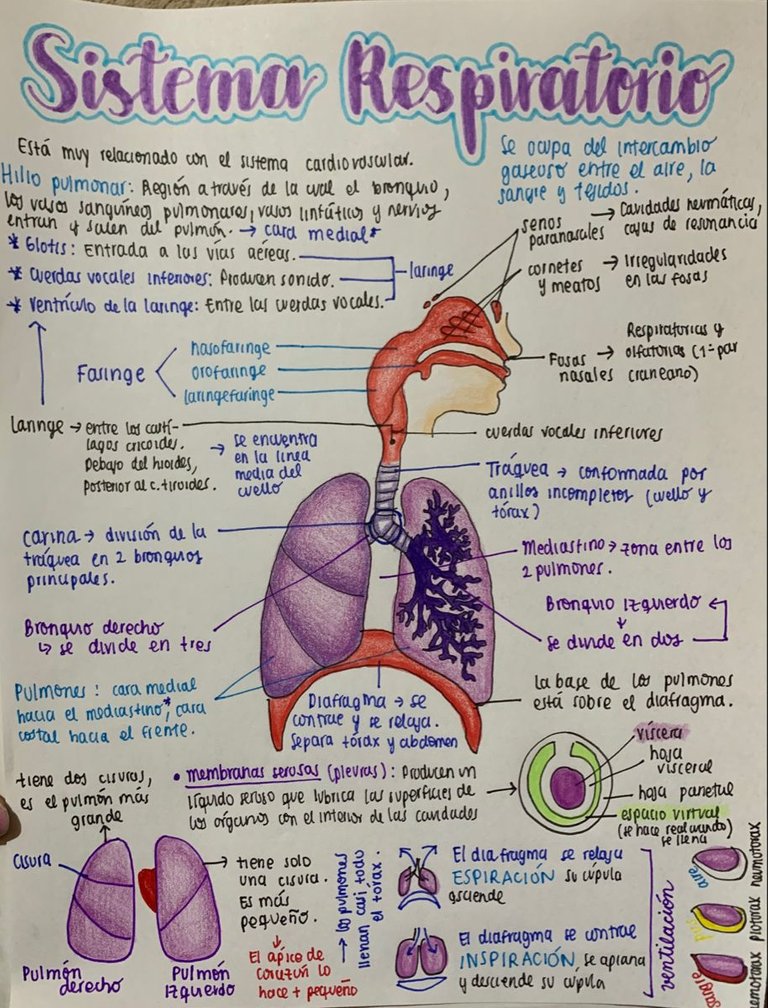 Sistema Respiratorio
Está muy relacionado con el sistema cardiovascular.
Hilio pulmonar: Región a través de la cual el bronquio,
los vasos sanguíneos pulmonares, vasos linfáticos y nervios
entran y salen del pulmón. → cara medial*
* Glotis: Entrada a las vías aéreas.
* Cuerdas vocales inferiores: Producen sonido.
* Ventrículo de la laringe: Entre las cuerdas vocales.
laringe
Se ocupa del intercambio
gaseoso entre el aire, la
sangre y tejidos.
senos
paranasales
→ Cavidades neumáticas,
cajas de resonancia
cornetes
y meatos
→ Irregularidades
en las fosas
Fosas
nasales
→ Respiratorias y
olfatorias (1º par
craneano)
Faringe
nasofaringe
orofaringe
laringofaringe
Laringe → entre los cartí-
lagos cricoides.
Debajo del hioides,
posterior al c. tiroides.
→ se encuentra
en la línea
media del
cuello
cuerdas vocales inferiores
Tráquea → conformada por
anillos incompletos (cuello y
tórax)
carina → división de la
tráquea en 2 bronquios
principales.
Mediastino → zona entre los
2 pulmones.
Bronquio derecho
↳ se divide en tres
Bronquio izquierdo
se divide en dos
Pulmones: cara medial
hacia el mediastino*, cara
costal hacia el frente.
Diafragma → se
contrae y se relaja.
Separa tórax y abdomen
la base de los pulmones
está sobre el diafragma.
tiene dos cisuras,
es el pulmón más
grande
• membranas serosas (pleuras): Producen un
líquido seroso que lubrica las superficies de
los órganos con el interior de las cavidades
víscera
hoja
visceral
hoja parietal
espacio virtual
(se hace real cuando
se llena)
cisura
Pulmón
derecho
Pulmón
Izquierdo
→ tiene solo
una cisura.
Es más
pequeño.
El ápice de
corazón lo
hace + pequeño
→ los pulmones
llenan casi todo
el tórax.
El diafragma se relaja
ESPIRACIÓN su cúpula
asciende
El diafragma se contrae
INSPIRACIÓN se aplana
y desciende su cúpula
ventilación
aire
neumotorax
piotorax
sangre